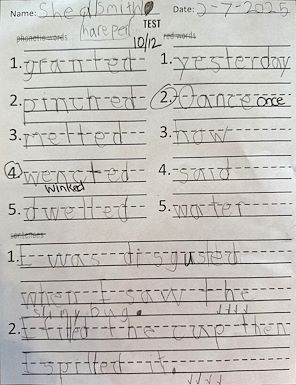 Name: Shea Smith Date: 2-7-2025
TEST
10/12
phonetic words red words
1. granted 1. yesterday
2. pinched 2. Oance once
3. melted 3. how
4. wencted 4. said
winked
5. dwelted 5. water
sentences
1. I was disgusted
when I saw the
stink bug.
2. I filled the cup then
I spilled it.